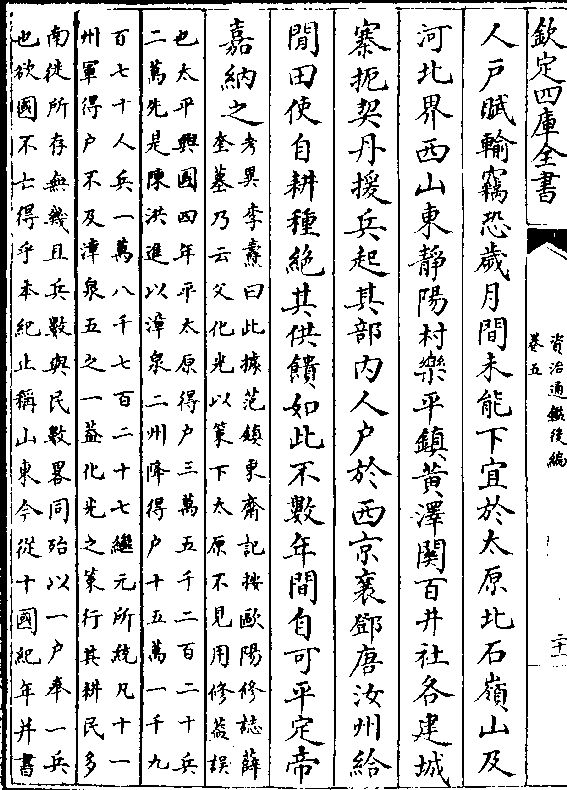 欽定四庫全書
資治通鑑後編
卷五
二十一
人戸賦輸竊恐歲月間未能下宜於太原北石嶺山及
河北界西山東靜陽村樂平鎮黄澤關百井社各建城
寨扼契丹援兵起其部内人戸於西京襄鄧唐汝州給
閒田使自耕種絶其供饋如此不數年間自可平定帝
嘉納之考異李燾曰此據范鎮東齋記按歐陽修誌薛
奎墓乃云父化光以策下太原不見用修葢誤
也太平興國四年平太原得戸三萬五千二百二十兵
二萬先是陳洪進以漳泉二州降得戸十五萬一千九
百七十人兵一萬八千七百二十七繼元所統凡十一
州軍得戸不及漳泉五之一葢化光之策行其耕民多
南徙所存無幾且兵數與民數畧同殆以一戸奉一兵
也欲國不亡得乎本紀止稱山東今從十國紀年幷書